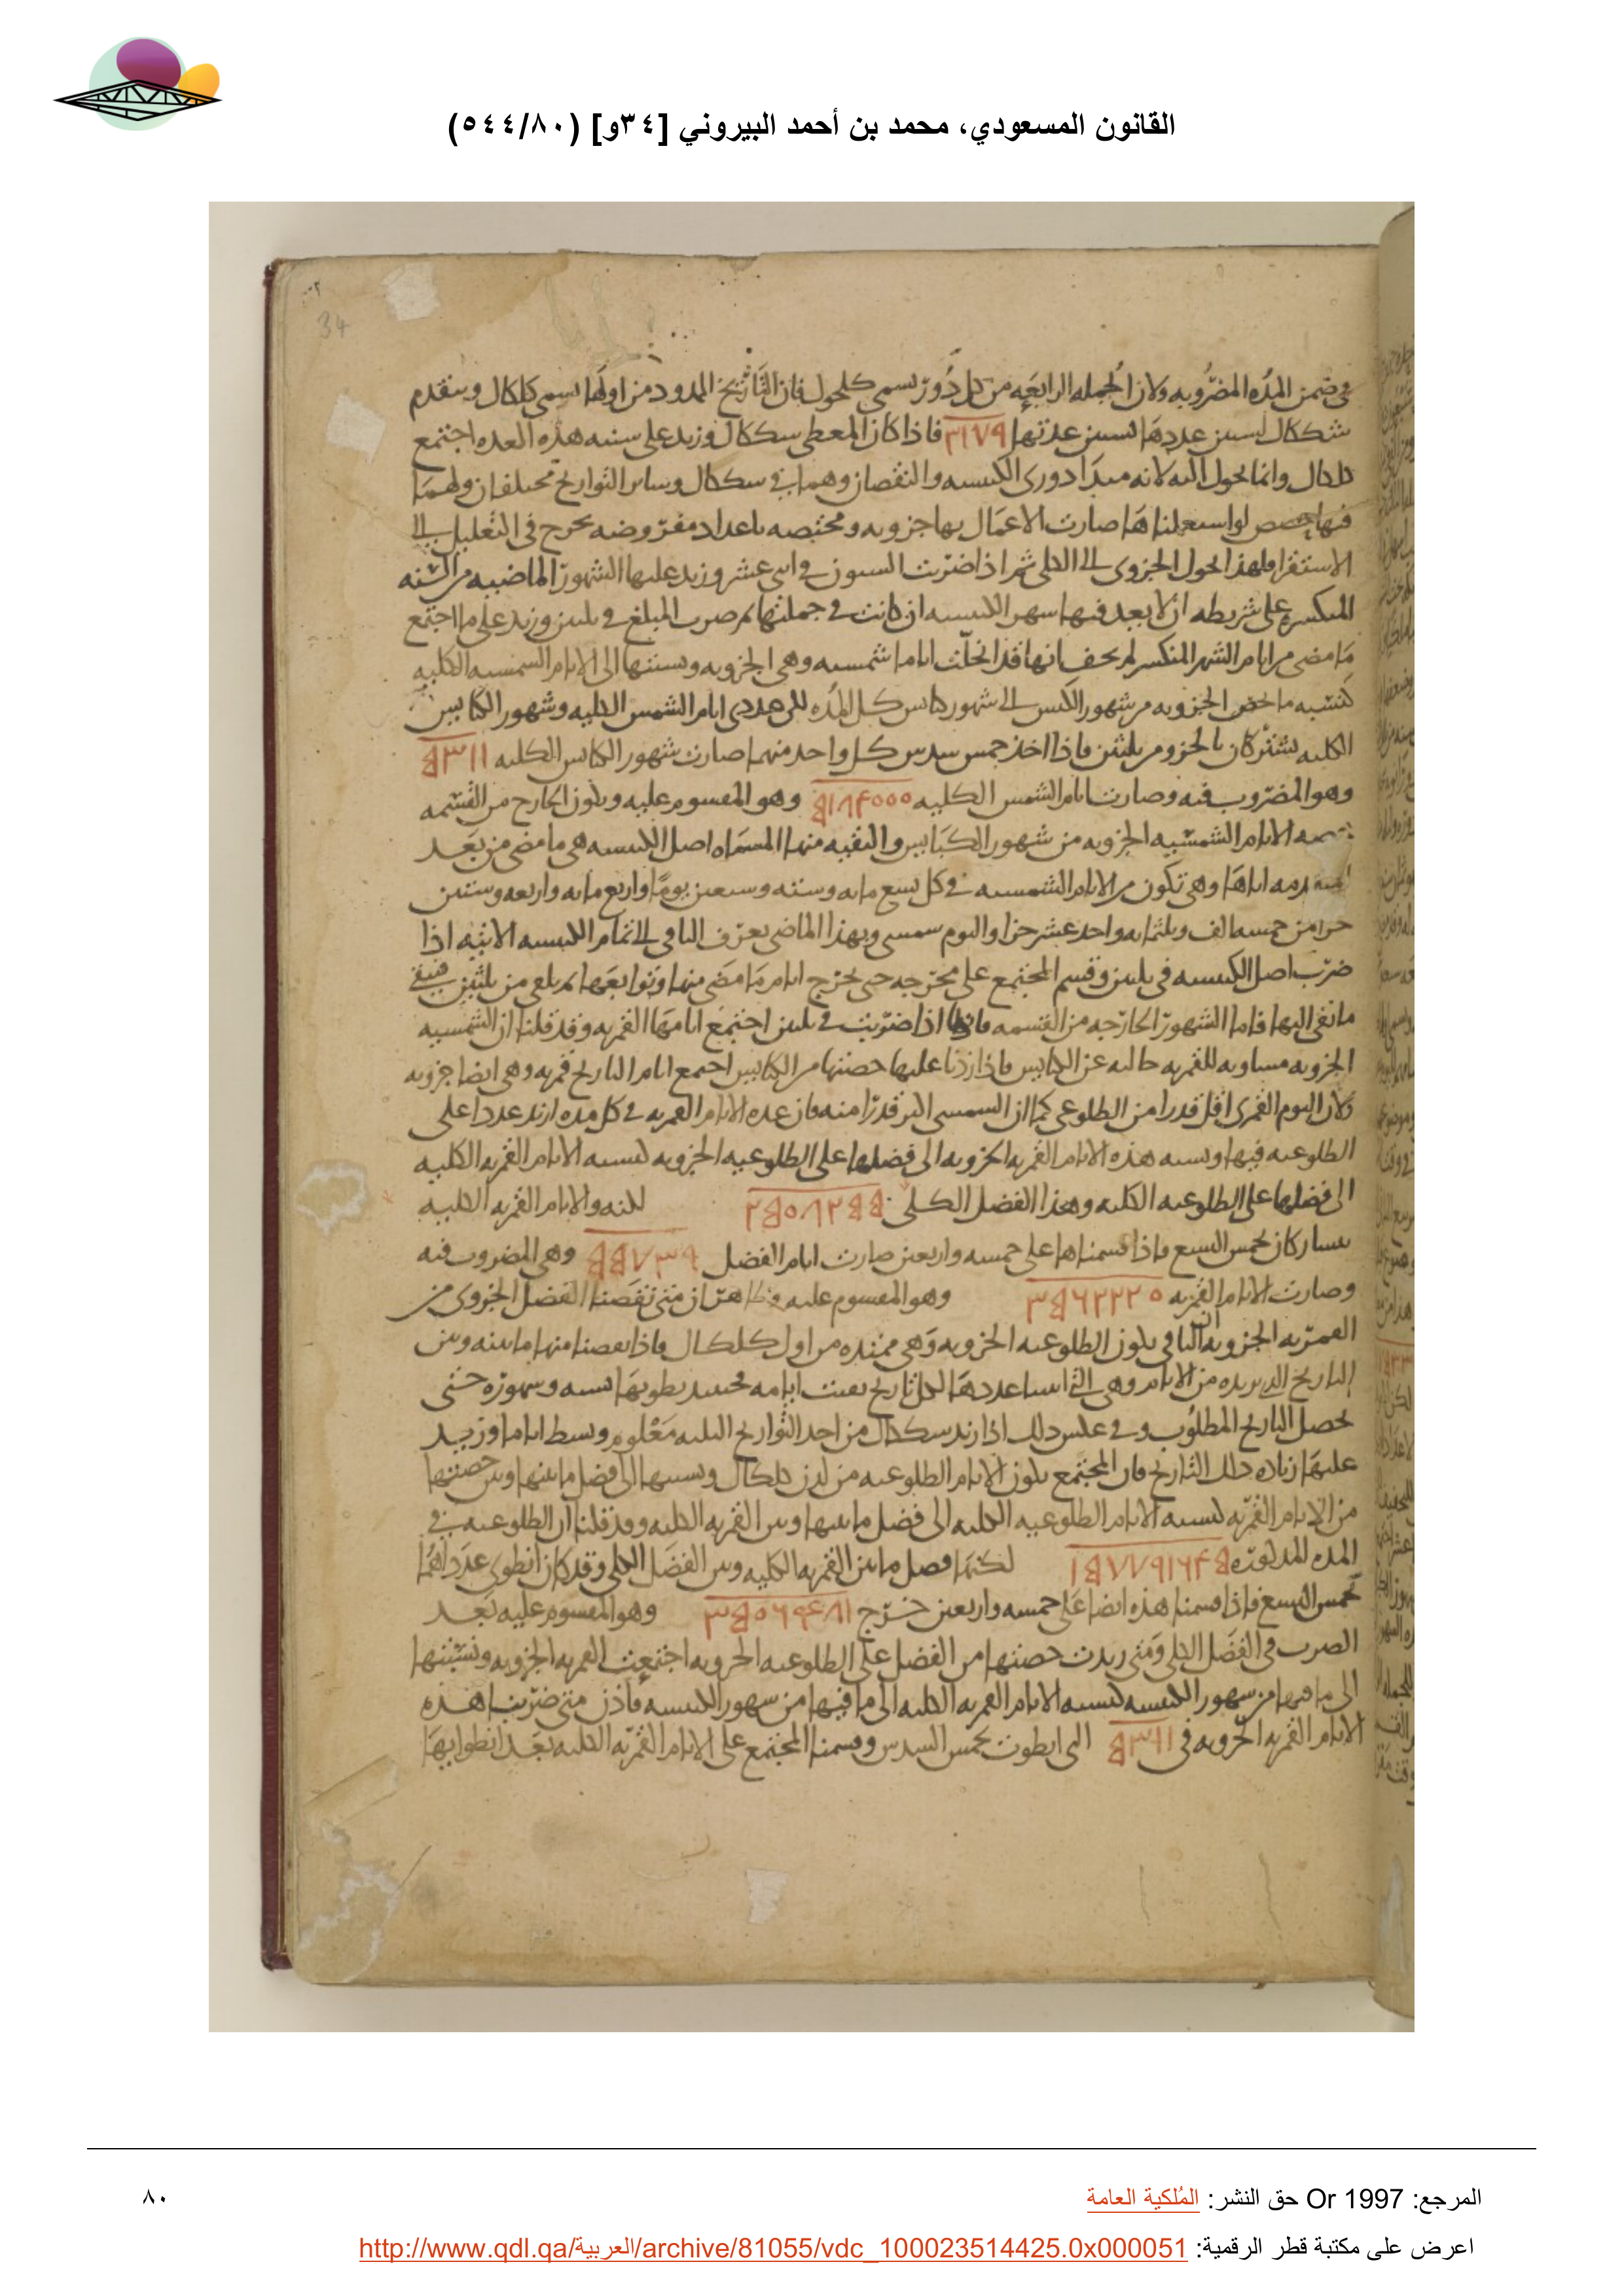 القانون المسعودي، محمد بن أحمد البيروني [٣٤و] (٥٤٤/٨٠)
34
في ضمن المده المضروبه ولان الجمله الرابعه من كل دور تسمى كلجول فان التاريخ الممدود من اولها يسمى كلكال ويتقدم
شككال بسنين عددها ٣١٧٩ فاذا كان المعطى سككال وزيد على سنيه هذه العده اجتمع
كلكال وانما يحول اليه لانه مبدا دورى الكبيسه والنقصان وهما في سككال وساير التواريخ مختلفان ولهما
فيها حصص لو استعملناها صارت الاعمال بها جزويه ومختصه باعداد مفروضه يخرج في التعليل الى
الاستقرا فلهذا يحول الجزوى الى الكلى ثم اذا ضربت السنون في اثنى عشر وزيد عليها الشهور الماضيه من السنه
المنكسره على شريطه ان لا يعد فيها شهر الكبيسه ان كانت في جملتها ثم ضرب المبلغ في ثلثين وزيد على ما اجتمع
ما مضى من ايام الشهر المنكسر لم يخف انها قد انحلت اياما شمسيه وهى الجزويه ونسبتها الى الايام الشمسيه الكليه
كنسبه ما يخص الجزويه من شهور الكبس الى شهور كبايس كل المده لكن عددى ايام الشمس الكليه وشهور الكبايس
الكليه يشتركان بالجزو من ثلثين فاذا اخذ خمس سدس كل واحد منهما صارت شهور الكبايس الكليه ٥٣١١
وهو المضروب فيه وصارت ايام الشمس الكليه ٥١٨٤٠٠٠ وهو المقسوم عليه ويكون الخارج من القسمه
الايام الشمسيه الجزويه من شهور الكبايس والبقيه منها المسماه اصل الكبيسه هى ما مضى من بعد
اياها وهى تكون من الايام الشمسيه في كل تسع مايه وسته وسبعين يوما واربع مايه واربعه وستين
جزا من خمسه الف وثلثمايه واحد عشر جزا واليوم شمسى وبهذا الماضى يعرف الباقى الى تمام الكبيسه الاتيه اذا
ضرب اصل الكبيسه في ثلثين وقسم المجتمع على مخرجه حتى يخرج ايام ما مضى منها وتوابعها ثم يلقى من ثلثين فيبقى
ما بقى اليها فاما الشهور الخارجه من القسمه فانها اذا ضربت في ثلثين اجتمع ايامها القمريه وقد قلنا ان الشمسيه
الجزويه مساويه للقمريه خاليه عن الكبايس فاذا زدنا عليها حصتها من الكبايس اجتمع ايام التاريخ قمريه وهى ايضا جزويه
ولان اليوم القمرى اقل قدرا من الطلوعى كما ان الشمسى اكبر قدرا منه فان عده الايام القمريه في كل مده ازيد عددا على
الطلوعيه فيها ونسبه هذه الايام القمريه الجزويه الى فضلها على الطلوعيه الجزويه كنسبه الايام القمريه الكليه
الى فضلها على الطلوعيه الكليه وهذا الفضل الكلى ٢٥٠٨٢٥٥ لكنه والايام القمريه الكليه
يتشاركان بخمس التسع فاذا قسمناها على خمسه واربعين صارت ايام الفضل ٥٥٧٣٩ وهى المضروب فيه
وصارت الايام القمريه ٣٥٦٢٢٢٠ وهو المقسوم عليه وظاهر ان متى نقصنا الفضل الجزوى من
القمريه الجزويه ان الباقى يكون الطلوعيه الجزويه وهى ممتده من اول كلكال فاذا نقصنا منها ما بينه وبين
التاريخ الذى نريده من الايام وهى التى اعددها لكل تاريخ بقيت ايامه فحينئذ يطويها بسنيه وشهوره حتى
يحصل التاريخ المطلوب وفى عكس ذلك اذا اريد سككال من احد التواريخ الثلثه معلوم وبسط اياما وزيد
عليها زياده ذلك التاريخ فان المجتمع يكون الايام الطلوعيه من لدن كلكال ونسبتها الى فضل ما بينها وبين حصتها
من الايام القمريه كنسبه الايام الطلوعيه الكليه الى فضل ما بينها وبين القمريه الكليه وقد قلنا ان الطلوعيه في
المده المذكوره ١٥٧٧٩١٦٤٥ لكنها فصل ما بين القمريه الكليه وبين الفضل الكلى وقد كان انطوى عدداهما
بخمس التسع فاذا قسمنا هذه ايضا على خمسه واربعين خرج ٣٥٠٦٤٨١ وهو المقسوم عليه بعد
الضرب فى الفضل الكلى ومتى زيدت حصتها من الفضل على الطلوعيه الجزويه اجتمعت القمريه الجزويه ونسبتها
الى ما فيها من شهور الكبيسه كنسبه الايام القمريه الكليه الى ما فيها من شهور الكبيسه فاذن متى ضربنا هذه
الايام القمريه الجزويه فى ٥٣١١ التى انطوت بخمس السدس وقسمنا المجتمع على الايام القمريه الكليه بعد انطوايها
المرجع: Or 1997 حق النشر: المُلكية العامة
٨٠
اعرض على مكتبة قطر الرقمية: http://www.qdl.qa/العربية/archive/81055/vdc_100023514425.0x000051